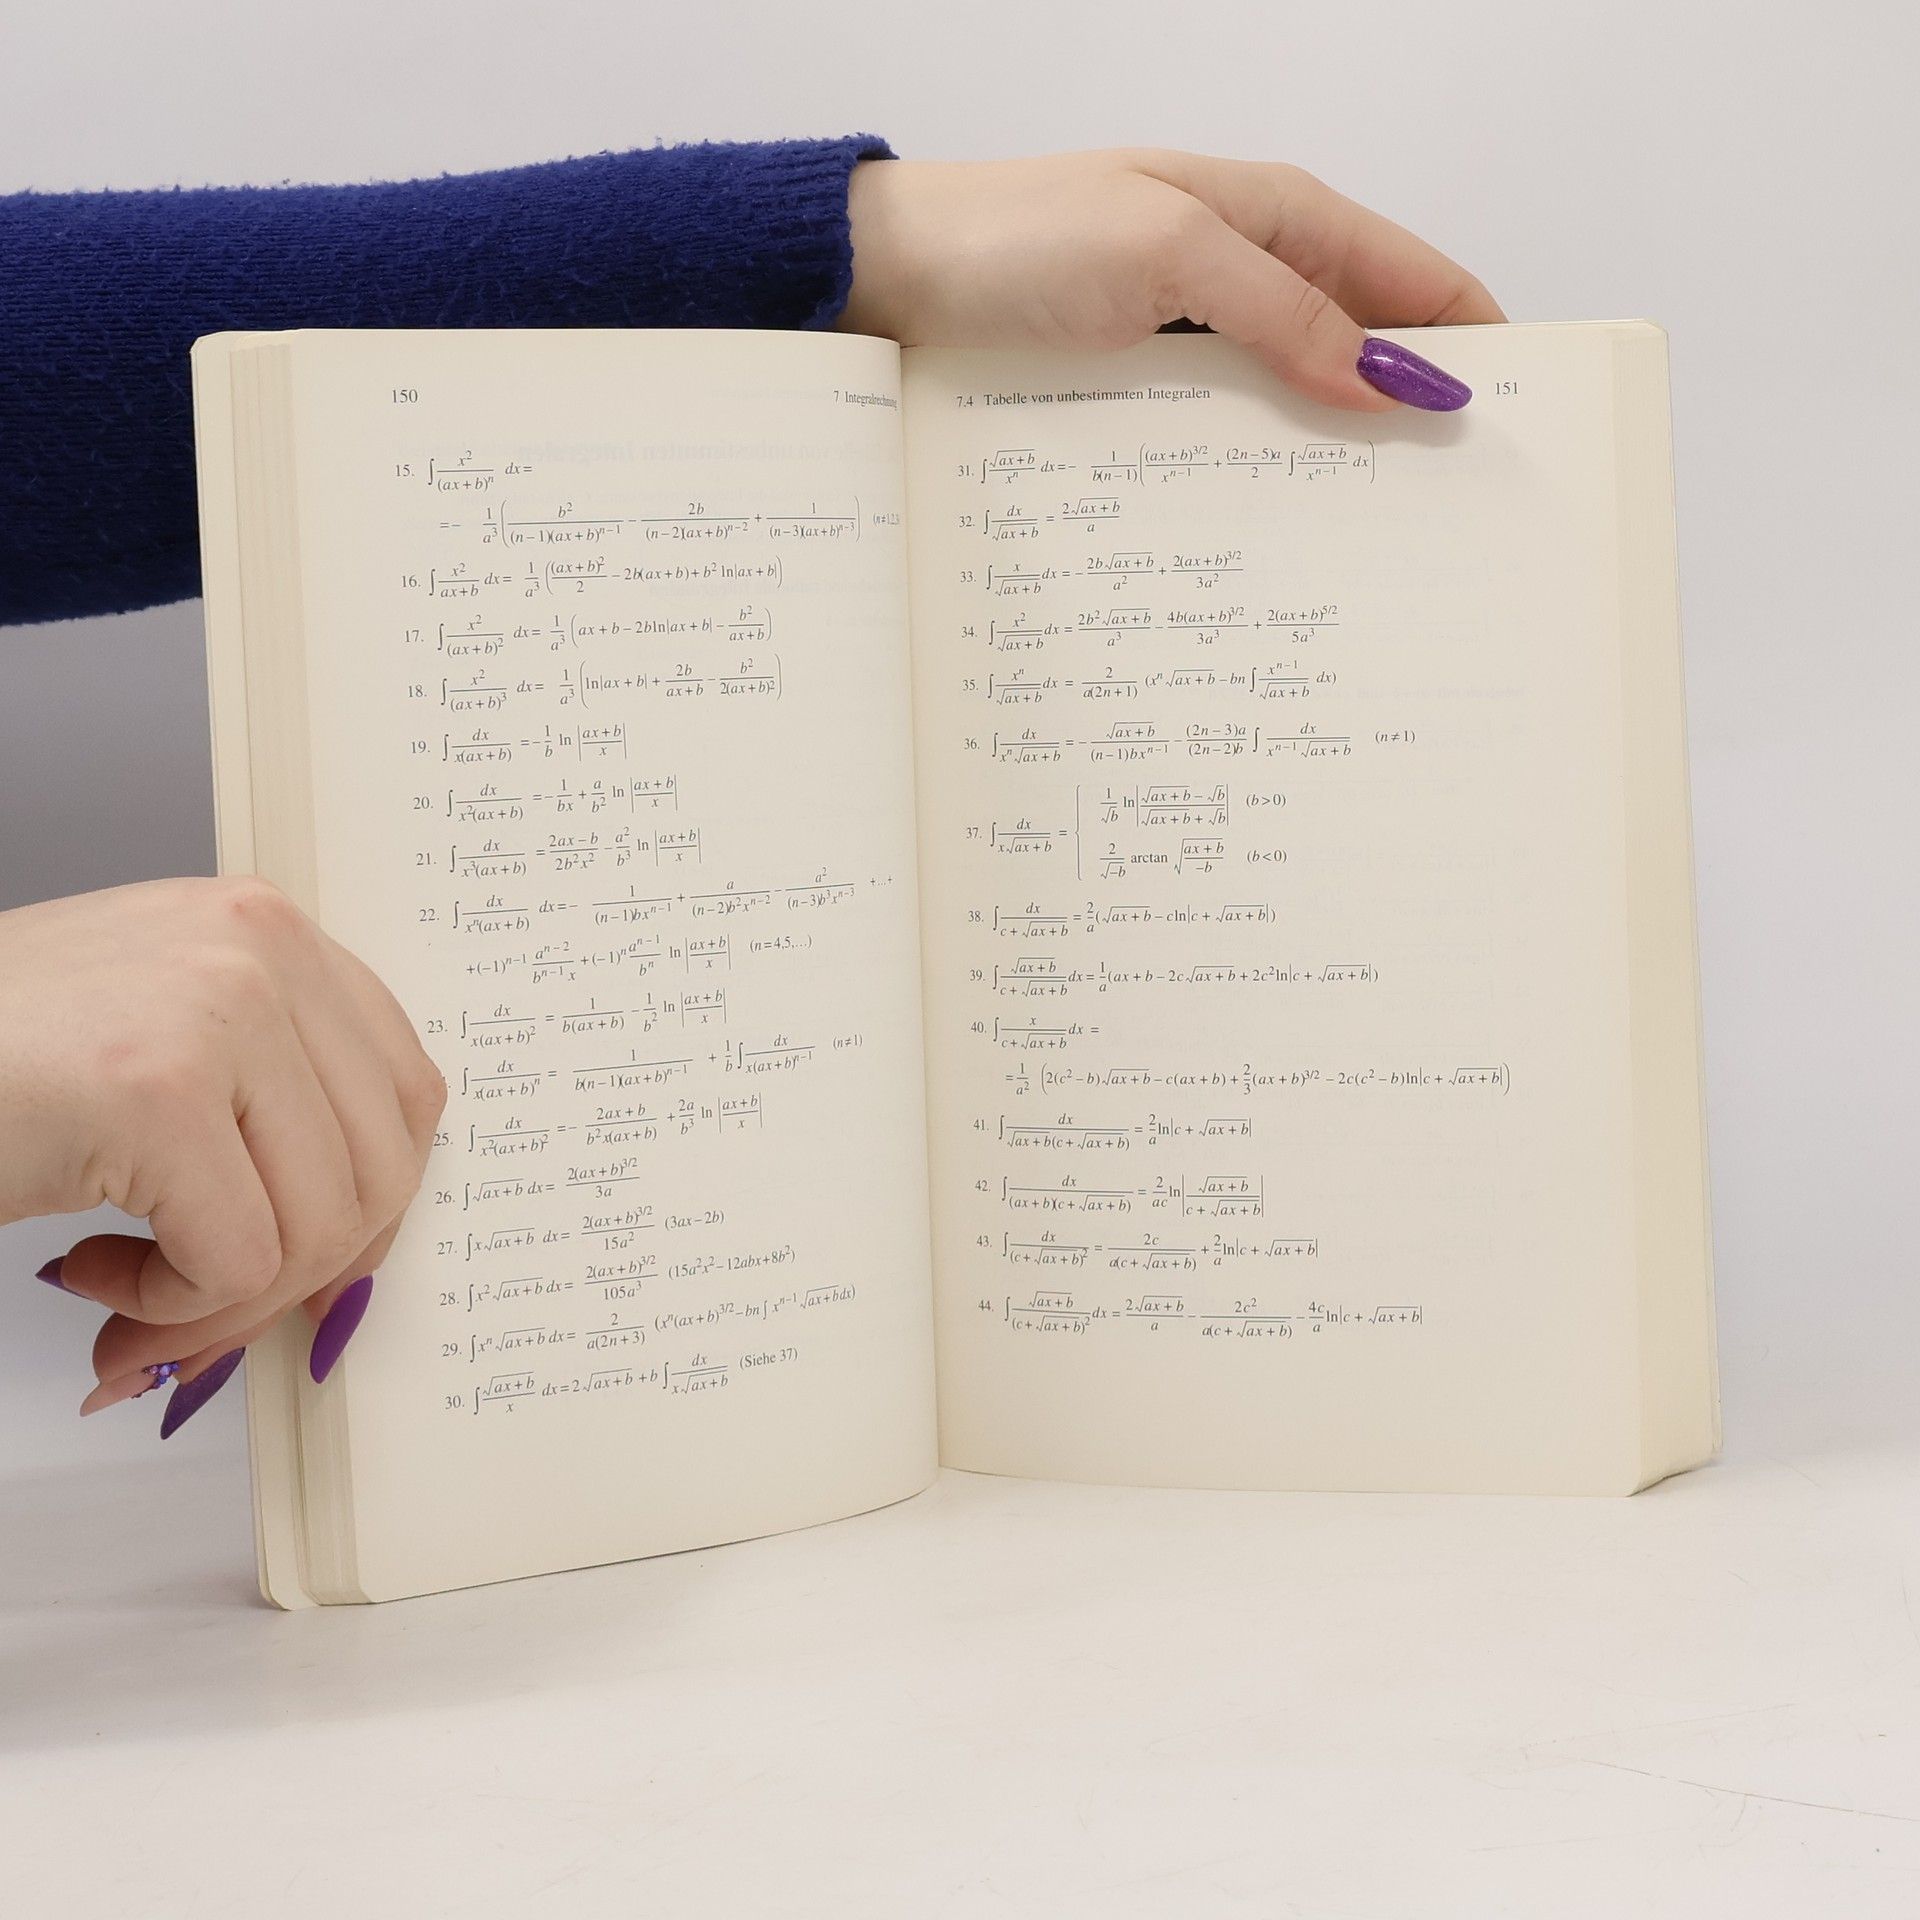 150 7 Integralrechnung
15. ∫ x²/(ax+b)ⁿ dx =
= − 1/a³ ( b²/((n−1)(ax+b)ⁿ⁻¹) − 2b/((n−2)(ax+b)ⁿ⁻²) + 1/((n−3)(ax+b)ⁿ⁻³) ) (n≠1,2,3)
16. ∫ x²/(ax+b) dx = 1/a³ ( (ax+b)²/2 − 2b(ax+b) + b² ln|ax+b| )
17. ∫ x²/(ax+b)² dx = 1/a³ ( ax+b − 2b ln|ax+b| − b²/(ax+b) )
18. ∫ x²/(ax+b)³ dx = 1/a³ ( ln|ax+b| + 2b/(ax+b) − b²/(2(ax+b)²) )
19. ∫ dx/(x(ax+b)) = −1/b ln |(ax+b)/x|
20. ∫ dx/(x²(ax+b)) = −1/(bx) + a/b² ln |(ax+b)/x|
21. ∫ dx/(x³(ax+b)) = (2ax−b)/(2b²x²) − a²/b³ ln |(ax+b)/x|
22. ∫ dx/(xⁿ(ax+b)) dx = − 1/((n−1)bxⁿ⁻¹) + a/((n−2)b²xⁿ⁻²) − a²/((n−3)b³xⁿ⁻³) +...+
+(−1)ⁿ⁻¹ aⁿ⁻²/(bⁿ⁻¹x) + (−1)ⁿ aⁿ⁻¹/bⁿ ln |(ax+b)/x| (n=4,5,...)
23. ∫ dx/(x(ax+b)²) = 1/(b(ax+b)) − 1/b² ln |(ax+b)/x|
∫ dx/(x(ax+b)ⁿ) = 1/(b(n−1)(ax+b)ⁿ⁻¹) + 1/b ∫ dx/(x(ax+b)ⁿ⁻¹) (n≠1)
25. ∫ dx/(x²(ax+b)²) = − (2ax+b)/(b²x(ax+b)) + 2a/b³ ln |(ax+b)/x|
26. ∫ √(ax+b) dx = 2(ax+b)^(3/2)/(3a)
27. ∫ x√(ax+b) dx = 2(ax+b)^(3/2)/(15a²) (3ax−2b)
28. ∫ x²√(ax+b) dx = 2(ax+b)^(3/2)/(105a³) (15a²x²−12abx+8b²)
29. ∫ xⁿ√(ax+b) dx = 2/(a(2n+3)) (xⁿ(ax+b)^(3/2) − bn ∫ xⁿ⁻¹√(ax+b) dx)
30. ∫ √(ax+b)/x dx = 2√(ax+b) + b ∫ dx/(x√(ax+b)) (Siehe 37)
7.4 Tabelle von unbestimmten Integralen 151
31. ∫ √(ax+b)/xⁿ dx = − 1/(b(n−1)) ( (ax+b)^(3/2)/xⁿ⁻¹ + (2n−5)a/2 ∫ √(ax+b)/xⁿ⁻¹ dx )
32. ∫ dx/√(ax+b) = 2√(ax+b)/a
33. ∫ x/√(ax+b) dx = − 2b√(ax+b)/a² + 2(ax+b)^(3/2)/(3a²)
34. ∫ x²/√(ax+b) dx = 2b²√(ax+b)/a³ − 4b(ax+b)^(3/2)/(3a³) + 2(ax+b)^(5/2)/(5a³)
35. ∫ xⁿ/√(ax+b) dx = 2/(a(2n+1)) (xⁿ√(ax+b) − bn ∫ xⁿ⁻¹/√(ax+b) dx)
36. ∫ dx/(xⁿ√(ax+b)) = − √(ax+b)/((n−1)bxⁿ⁻¹) − (2n−3)a/((2n−2)b) ∫ dx/(xⁿ⁻¹√(ax+b)) (n≠1)
37. ∫ dx/(x√(ax+b)) = { 1/√b ln |(√(ax+b) − √b)/(√(ax+b) + √b)| (b>0)
2/√(−b) arctan √((ax+b)/(−b)) (b<0)
38. ∫ dx/(c+√(ax+b)) = 2/a (√(ax+b) − c ln|c+√(ax+b)|)
39. ∫ √(ax+b)/(c+√(ax+b)) dx = 1/a (ax+b − 2c√(ax+b) + 2c² ln|c+√(ax+b)|)
40. ∫ x/(c+√(ax+b)) dx =
= 1/a² ( 2(c²−b)√(ax+b) − c(ax+b) + 2/3 (ax+b)^(3/2) − 2c(c²−b) ln|c+√(ax+b)| )
41. ∫ dx/(√(ax+b)(c+√(ax+b))) = 2/a ln|c+√(ax+b)|
42. ∫ dx/((ax+b)(c+√(ax+b))) = 2/(ac) ln |√(ax+b)/(c+√(ax+b))|
43. ∫ dx/(c+√(ax+b))² = 2c/(a(c+√(ax+b))) + 2/a ln|c+√(ax+b)|
44. ∫ √(ax+b)/(c+√(ax+b))² dx = 2√(ax+b)/a − 2c²/(a(c+√(ax+b))) − 4c/a ln|c+√(ax+b)|